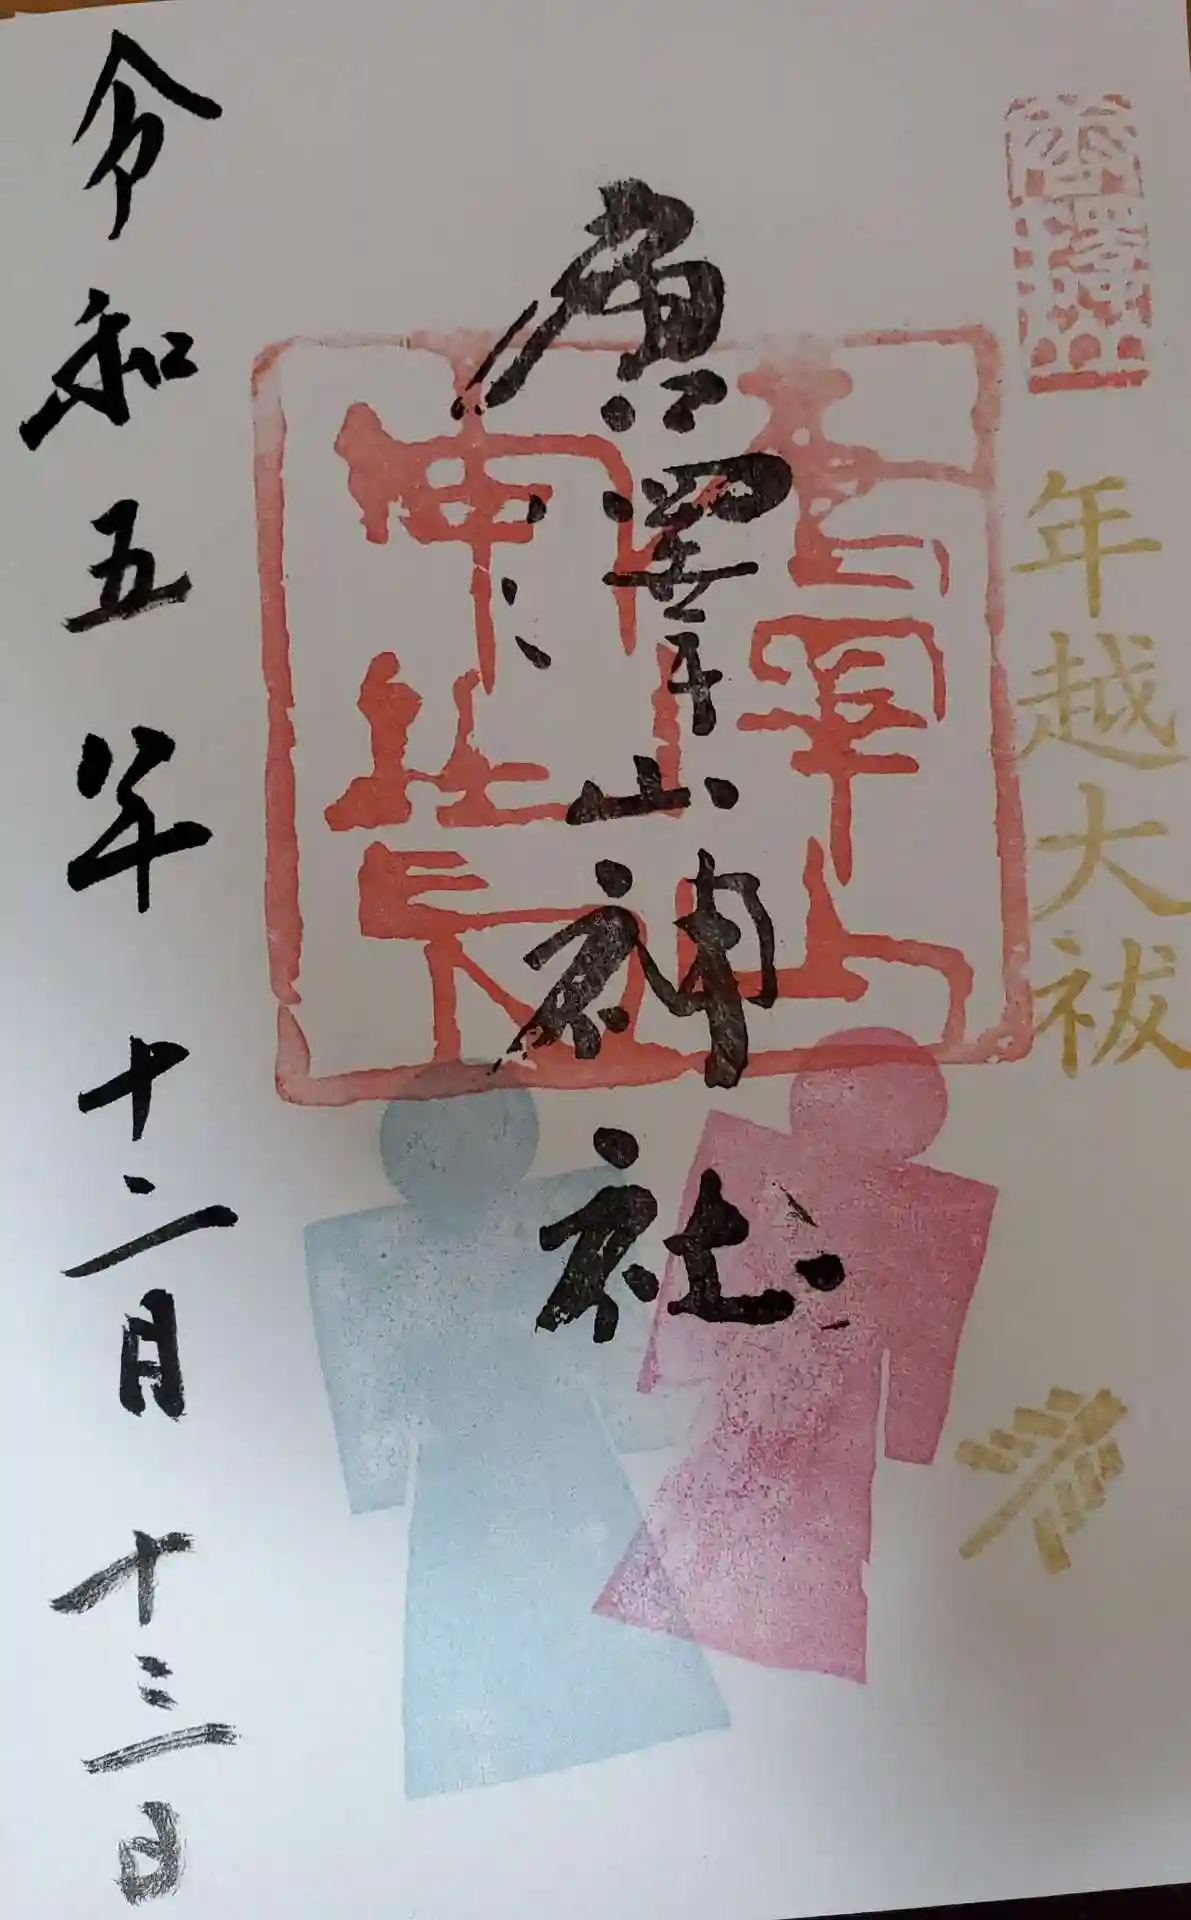 唐澤山
年越大祓
唐澤山神社
令和五年十二月十三日